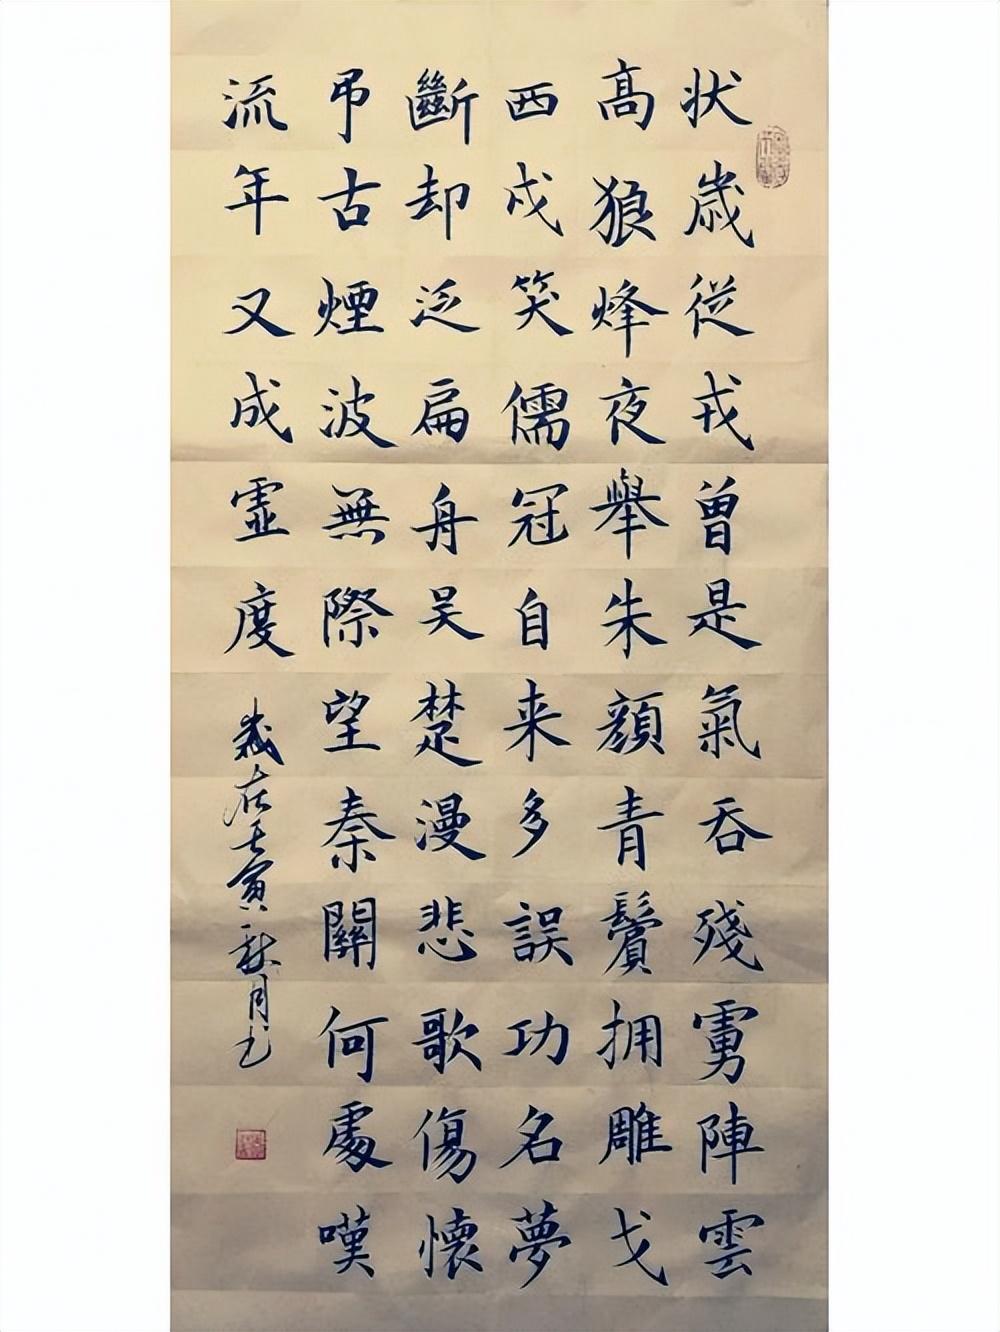 状歲從戎曾是氣吞殘雳陣雲
高狼烽夜舉朱顏青鬢拥雕戈
西戍笑儒冠自来多誤功名夢
斷却泛扁舟吴楚漫悲歌傷懷
弔古煙波無際望秦關何處嘆
流年又成虚度
歲在壬寅秋月书